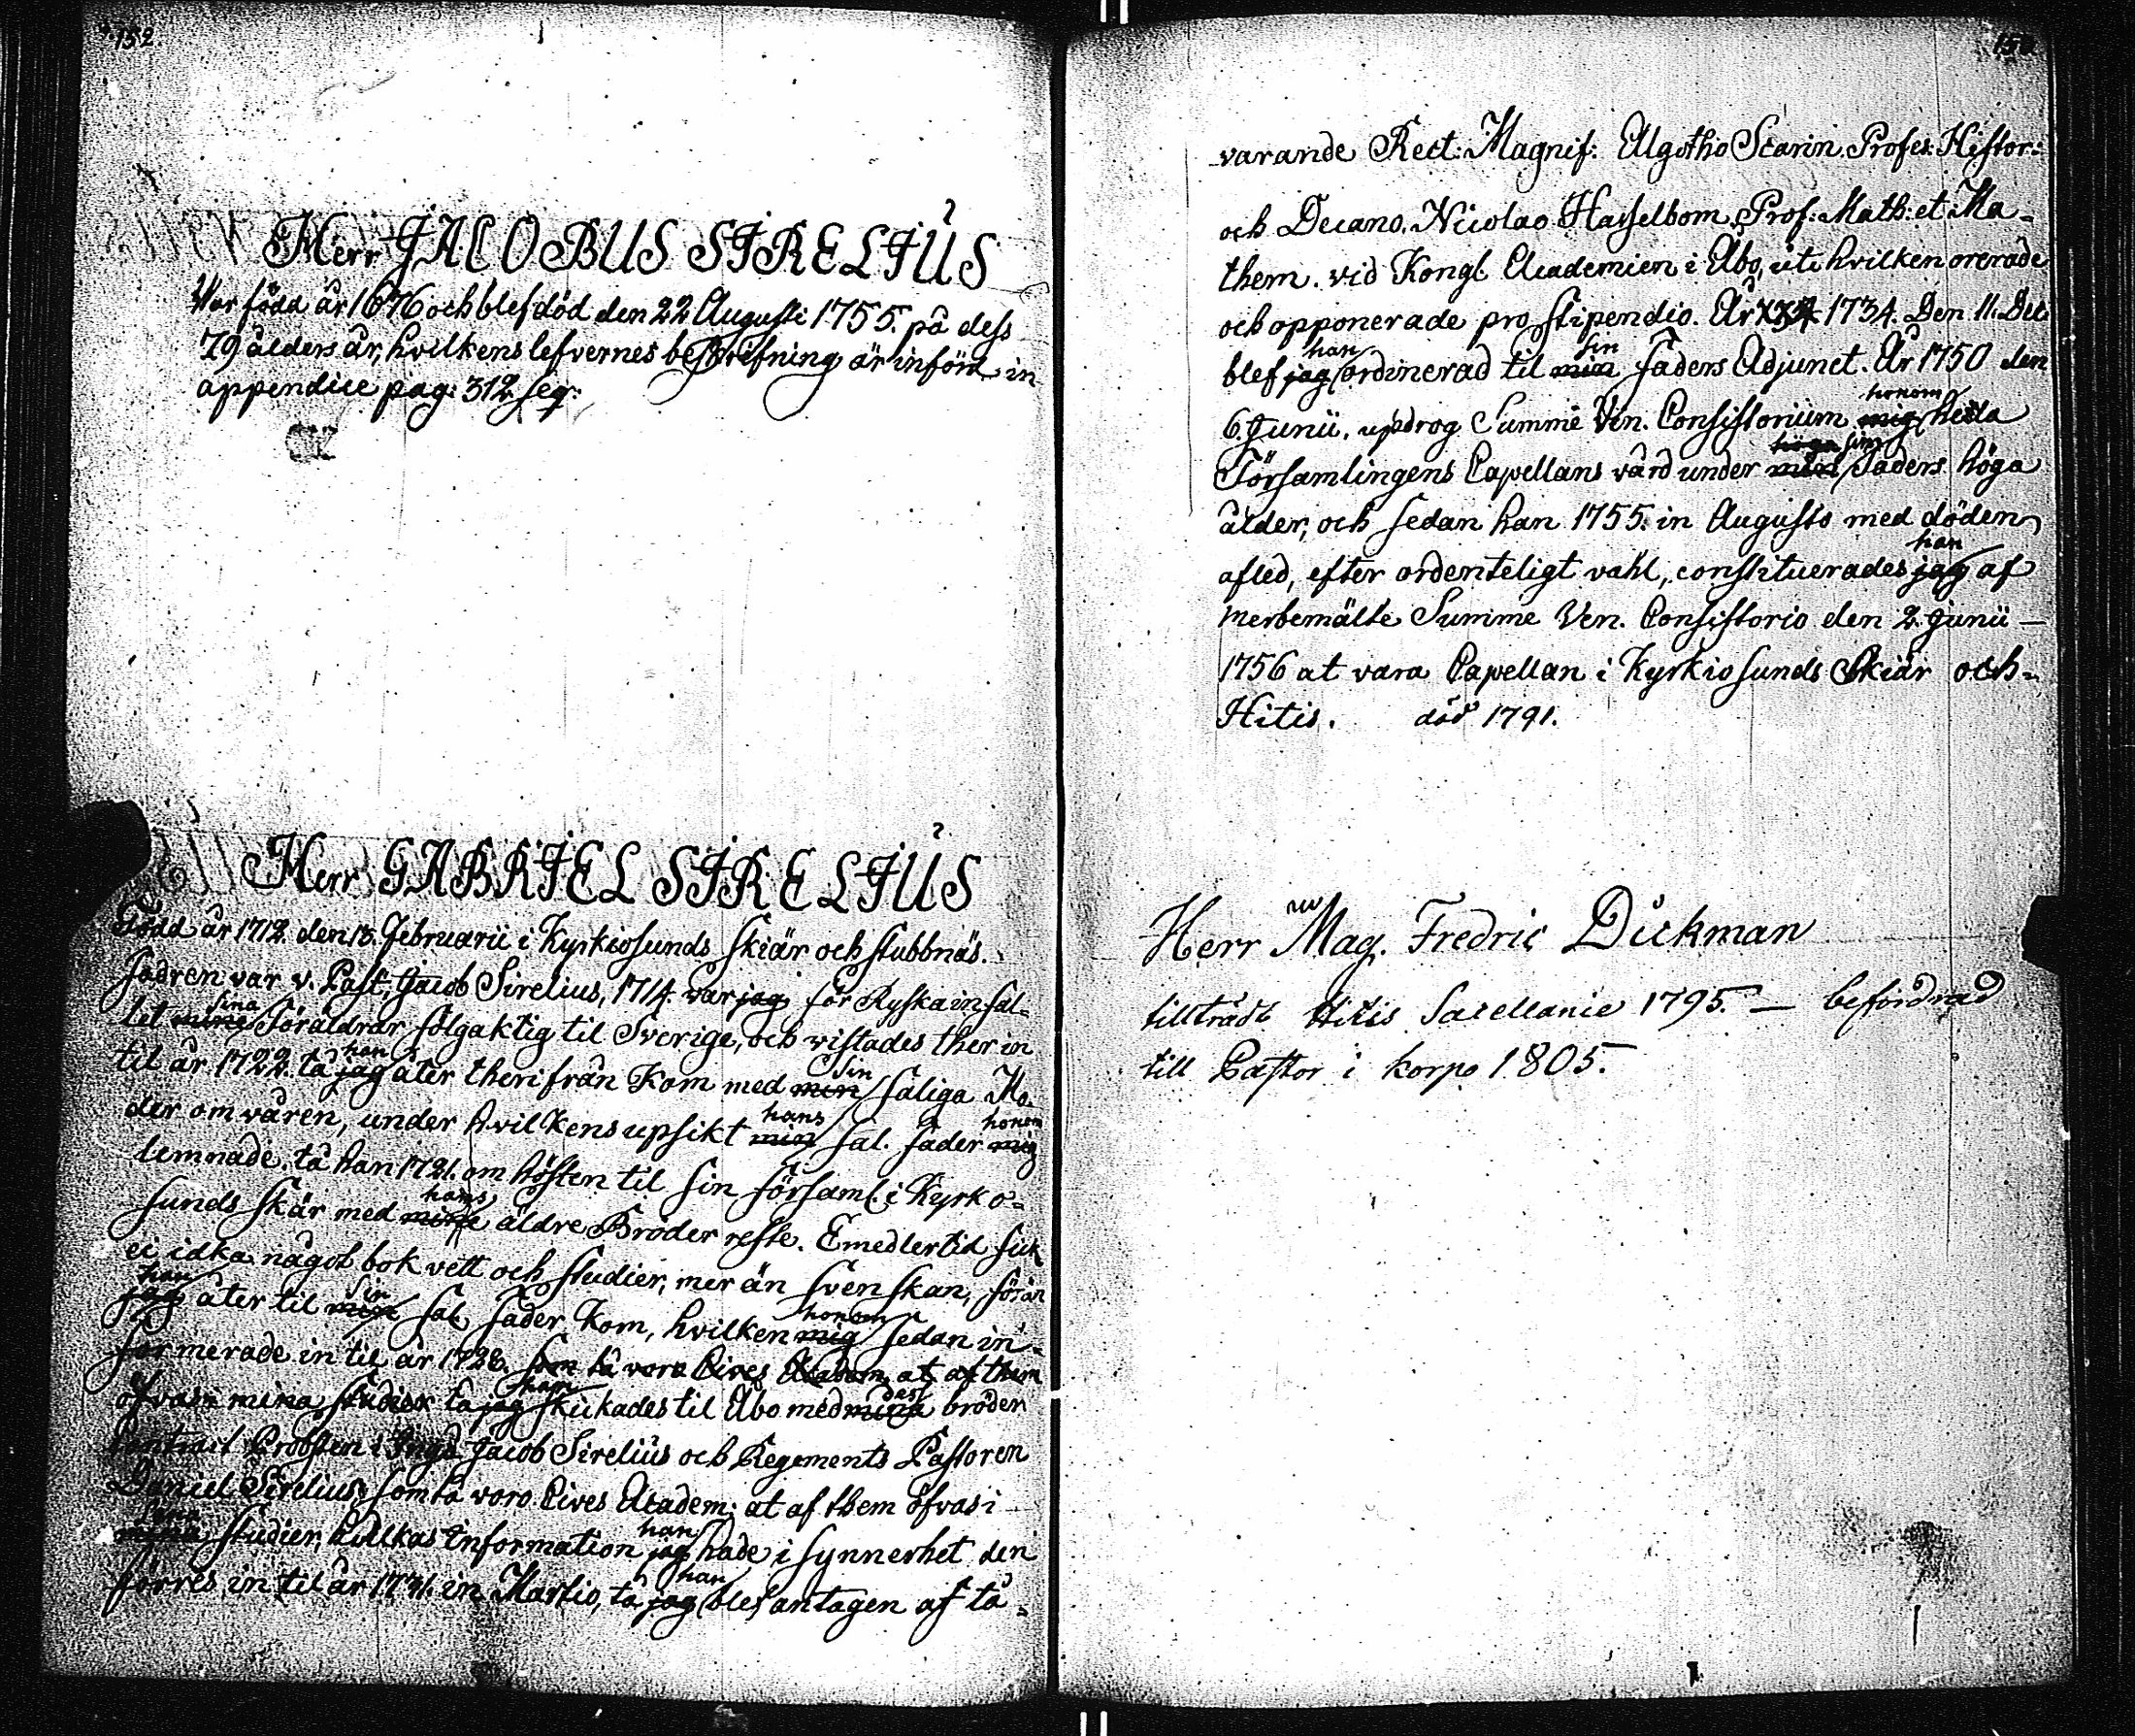 152.
Herr JACOBUS SIRELIUS
War född år 1676 och blef död den 22 Augusti 1755. på dess
79 ålders år, hvilkens lefvernes beskrifning är införd in
appendice pag: 312. seq:
Herr GABRIEL SIRELIUS
Född år 1712. den 15. Februarii i Kyrkiosunds skiär och stubbnäs.
Fadren var v. Past. Jacob Sirelius, 1714. var jag för Ryska infal-
let mine sina Föräldrar fölgaktig til Sverige, och vistades ther in
til år 1722. tå jag han åter therifrån kom med min sin saliga Mo-
der om våren, under hvilkens upsikt min hans sal. fader mig honom
lemnade, tå han 1721. om hösten til sin församl. i Kyrko-
sunds skär med mine hans äldre Bröder reste. Emedlertid fick
ei idka något bok vett och studier, mer än svenskan, förän
jag han åter til min sin sal. fader kom, hvilken mig honom sedan in-
formerade in til år 1728. som tå voro Cives Academ. at af them
öfvas i mina studier tå jag han skickades til Åbo med mina des bröder
Contract Probsten i Ingå Jacob Sirelius och Regements Pastoren
Daniel Sirelius, som tå voro Cives Academ: at af them öfvas i
mina sina studier, hvilkas information jag han hade i synnerhet den
förres in til år 1731. in Martio, tå jag han blef antagen af tå-
varande Rect: Magnif: Algotho Scarin. Profes: Histor:
och Decano. Nicolao Hasselbom, Prof: Math: et Ma-
them. vid Kongl. Academien i Åbo, uti hvilken orerade
och opponerade pro stipendio. År 1734. Den 11. Dec.
blef jag han ordinerad til min sin faders Adjunct. År 1750 den
6. Junii, updrog Summe Ven. Consistorium mig honom hela
Församlingens Capellans vård under min höga sin faders höga
ålder, och sedan han 1755. in Augusto med döden
afled, efter ordenteligt vahl, constituerades jag han af
merbemälte Summe Ven. Consistorio den 2. Junii —
1756 at vara Capellan i Kyrkiosunds Skiär och
Hitis. död 1791.
Herr Mag. Fredric Dickman
tillträdt Hitis Sacellanie 1795. — befordrad
till Pastor i Korpo 1805.